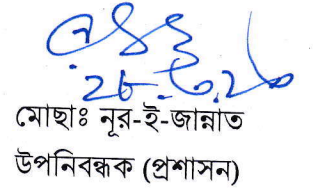 মোছাঃ নূর-ই-জান্নাত
উপনিবন্ধক (প্রশাসন)